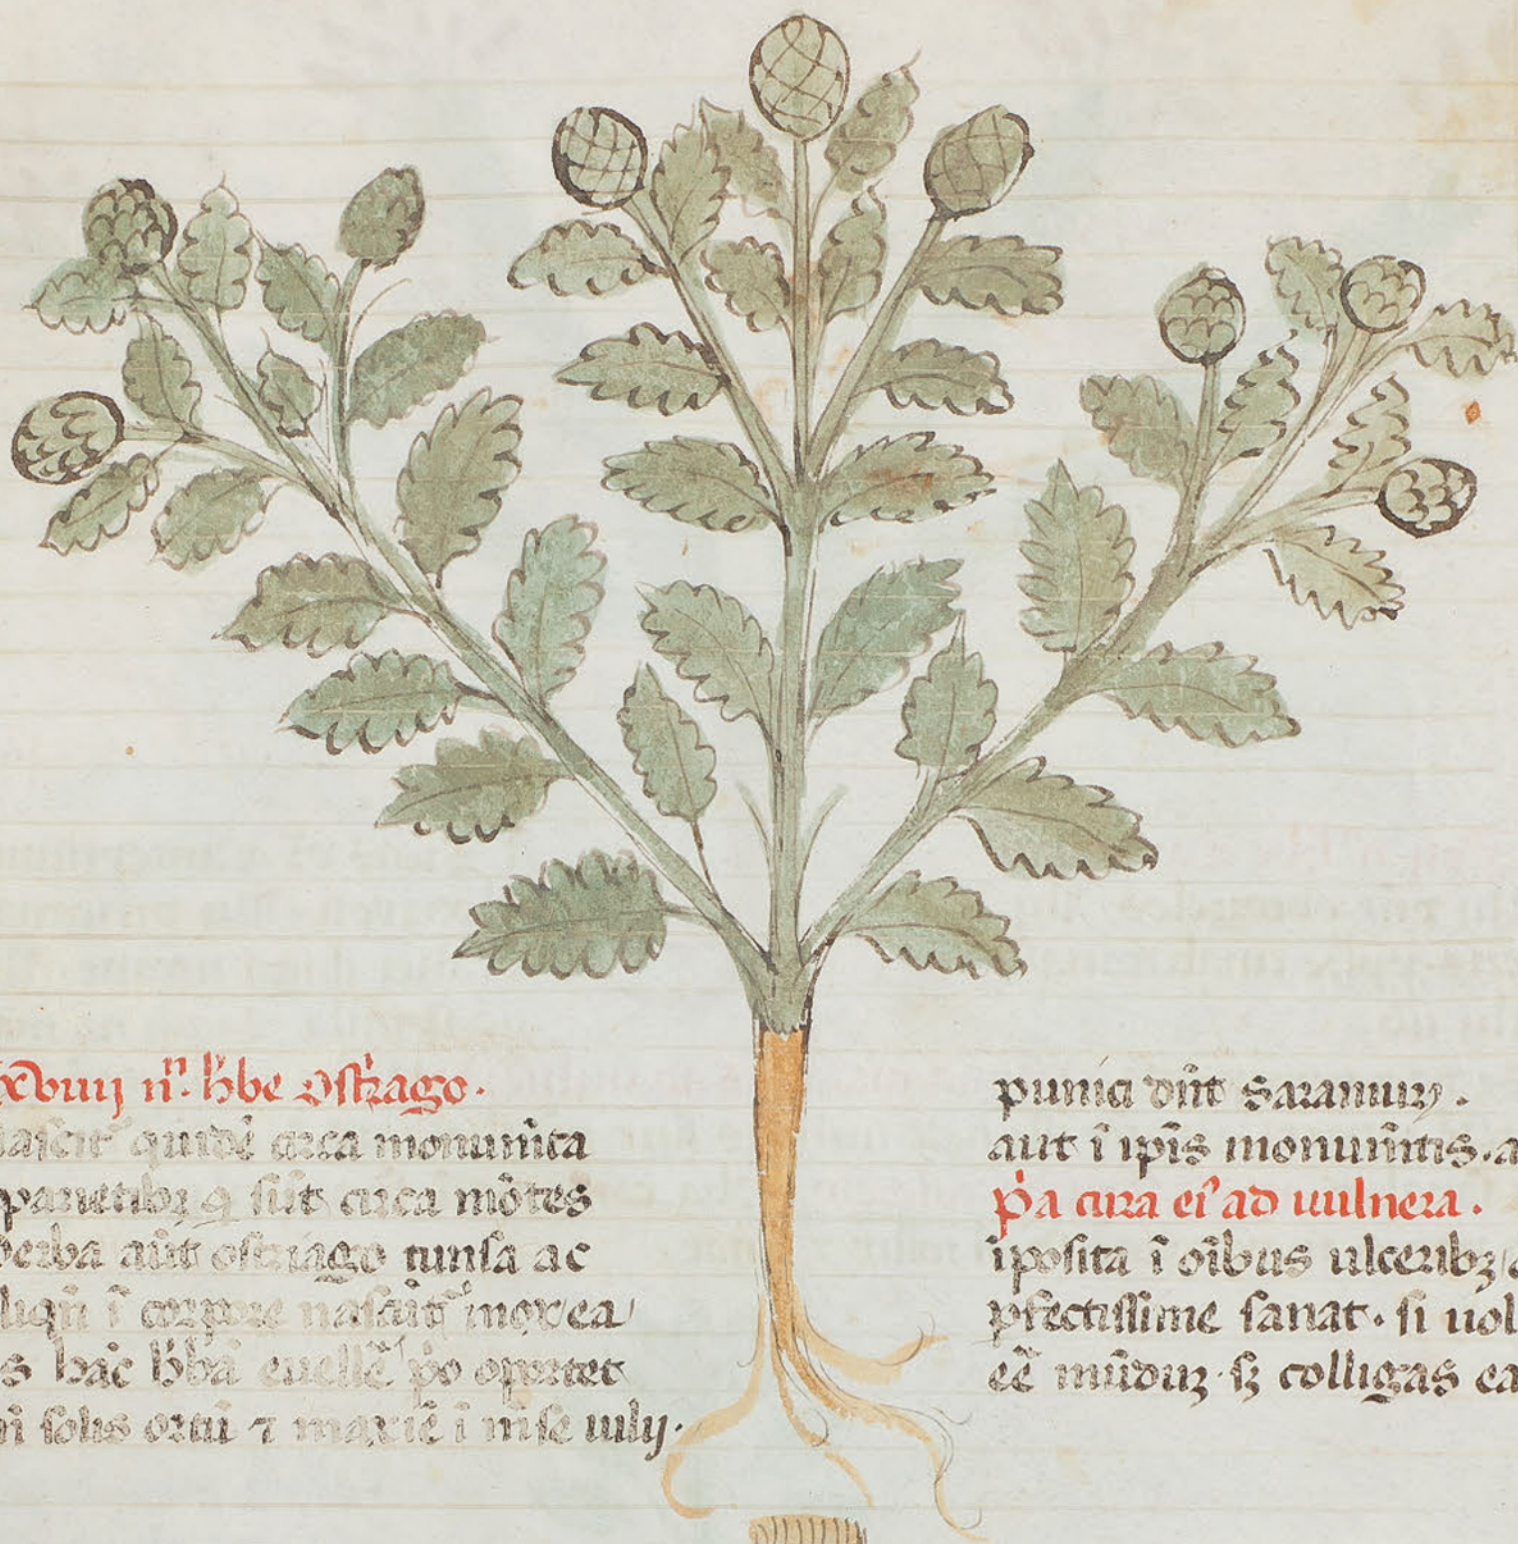 xviiij nͣ. h̄be ostrago.
nascit᷑ quidē circa monum̄ta
parietibꝫ q̄ sūt circa mōtes
herba aūt ostriago tunsa ac
liqn̄ ī corpore nascūt᷑ mox ea
s hāc h̄bā euellē p̊o oportet
n̄ solis ortū ⁊ maxiē ī m̄se iulij.
punici dn̄t saramuꝫ.
aut ī ip̄is monum̄tis. a
p̊a cura ei᷒ ad uulnera.
īposita ī oībus ulceribꝫ
pfectissime sanat. si uol
eē mūduꝫ sꝫ colligas ea